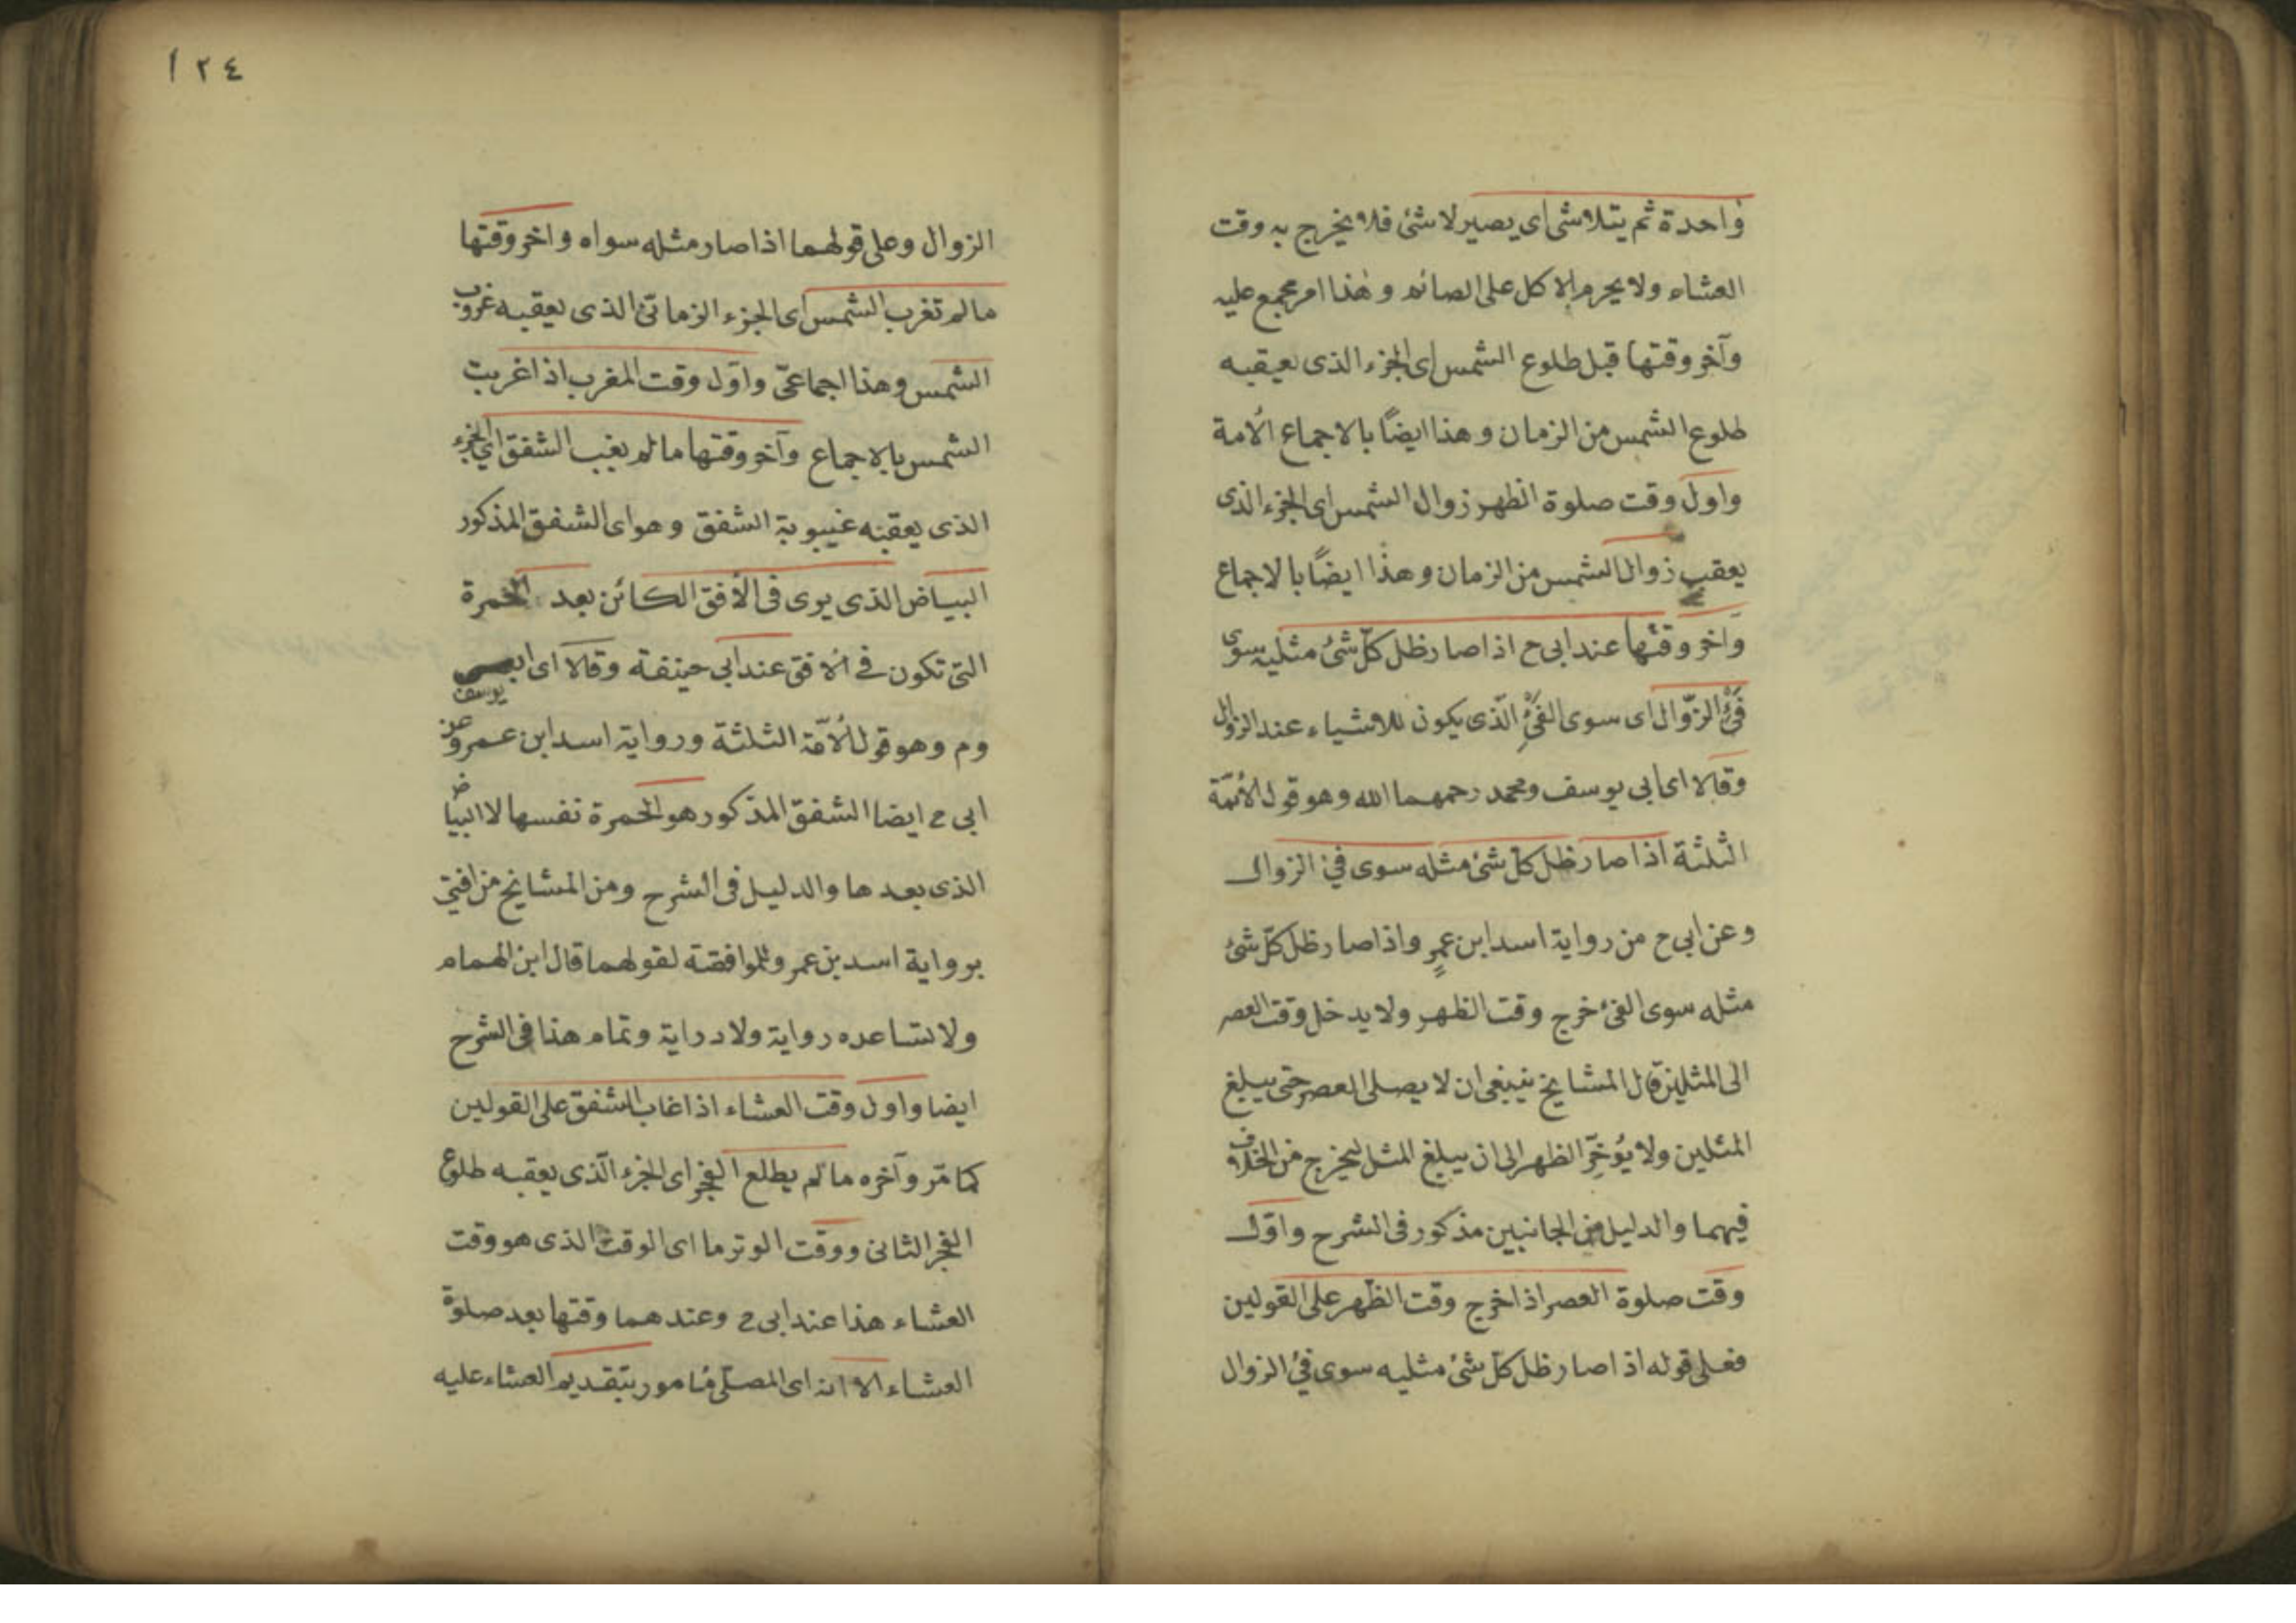 واحدة ثم يتلاشى اى يصير لا شئ فلا يخرج به وقت
العشاء ولا يحرم الاكل على الصائم وهذا امر مجمع عليه
وآخر وقتها قبل طلوع الشمس اى الجزء الذى يعيقبه
طلوع الشمس من الزمان وهذا ايضًا بالاجماع الأمة
واول وقت صلوة الظهر زوال الشمس اى الجزء الذى
يعقب زوال الشمس من الزمان وهذا ايضًا بالاجماع
وآخر وقتها عند ابى ح اذا صار ظل كلّ شئ مثليه سوى
فئ الزّوال اى سوى الفئ الّذى يكون للاشياء عند الزوال
وقالا اى ابى يوسف ومحمد رحمهما الله وهو قول الأئمّة
الثلثة اذا صار ظل كلّ شئ مثله سوى فئ الزوال
وعن ابى ح من رواية اسد ابن عمرٍ واذا صار ظل كلّ شئ
مثله سوى الفئ خرج وقت الظهر ولا يدخل وقت العصر
الى المثلين قال المشايخ ينبغى ان لا يصلى العصر حتى يبلغ
المثلين ولا يُؤخِّر الظهر الى ان يبلغ المثل ليخرج من الخلاف
فيهما والدليل من الجانبين مذكور فى الشرح واوّل
وقت صلوة العصر اذا خرج وقت الظّهر على القولين
فعلى قوله اذا صار ظل كلّ شئ مثليه سوى فئ الزوال
١٢٤
الزوال وعلى قولهما اذا صار مثله سواه واخر وقتها
مالم تغرب الشمس اى الجزء الزمانىّ الذى يعقبه غروب
الشمس وهذا اجماعىّ واوّل وقت المغرب اذا غربت
الشمس بالاجماع وآخر وقتها مالم يغب الشفق اي الجزء
الذى يعقبه غيبوبة الشفق وهو اى الشفق المذكور
البياض الذى يرى فى الأفق الكائن بعد الحمرة
التى تكون فى الافق عند ابى حنيفة وقالا اى ابى يوسف
وم وهو قول الأئمّة الثلثة ورواية اسد ابن عمرو عن
ابى ح ايضا الشفق المذكور هو الحمرة نفسها لا البياض
الذى بعدها والدليل فى الشرح ومن المشايخ من افتى
برواية اسد بن عمرو للموافقة لقولهما قال ابن الهمام
ولا تساعده رواية ولا دراية وتمام هذا فى الشرح
ايضا واول وقت العشاء اذا غاب الشفق على القولين
كما مّر وآخره مالم يطلع الفجر اى الجزء الّذى يعقبه طلوع
الفجر الثانى ووقت الوتر ما اى الوقت الذى هو وقت
العشاء هذا عند ابى ح وعندهما وقتها بعد صلوة
العشاء الا انه اى المصلّى مأمور بتقديم العشاء عليه